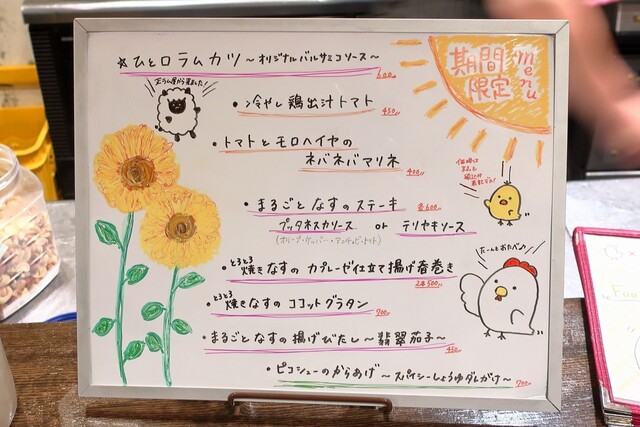 期間
限定
menu
☆ひと口ラムカツ～オリジナルバルサミコソース～
600
・冷やし鶏出汁トマト
450
・トマトとモロヘイヤの
ネバネバマリネ
400
・まるごとなすのステーキ
各600
プッタネスカソース or テリヤキソース
(オリーブ・ケッパー・アンチョビ・トマト)
・とろとろ焼きなすのカプレーゼ仕立て揚げ春巻き
2本500
・とろとろ焼きなすのココットグラタン
700
・まるごとなすの揚げびたし～翡翠茄子～
450
・ピコシューのからあげ～スパイシーしょうゆダレがけ～
700
たーんとおたべ♪